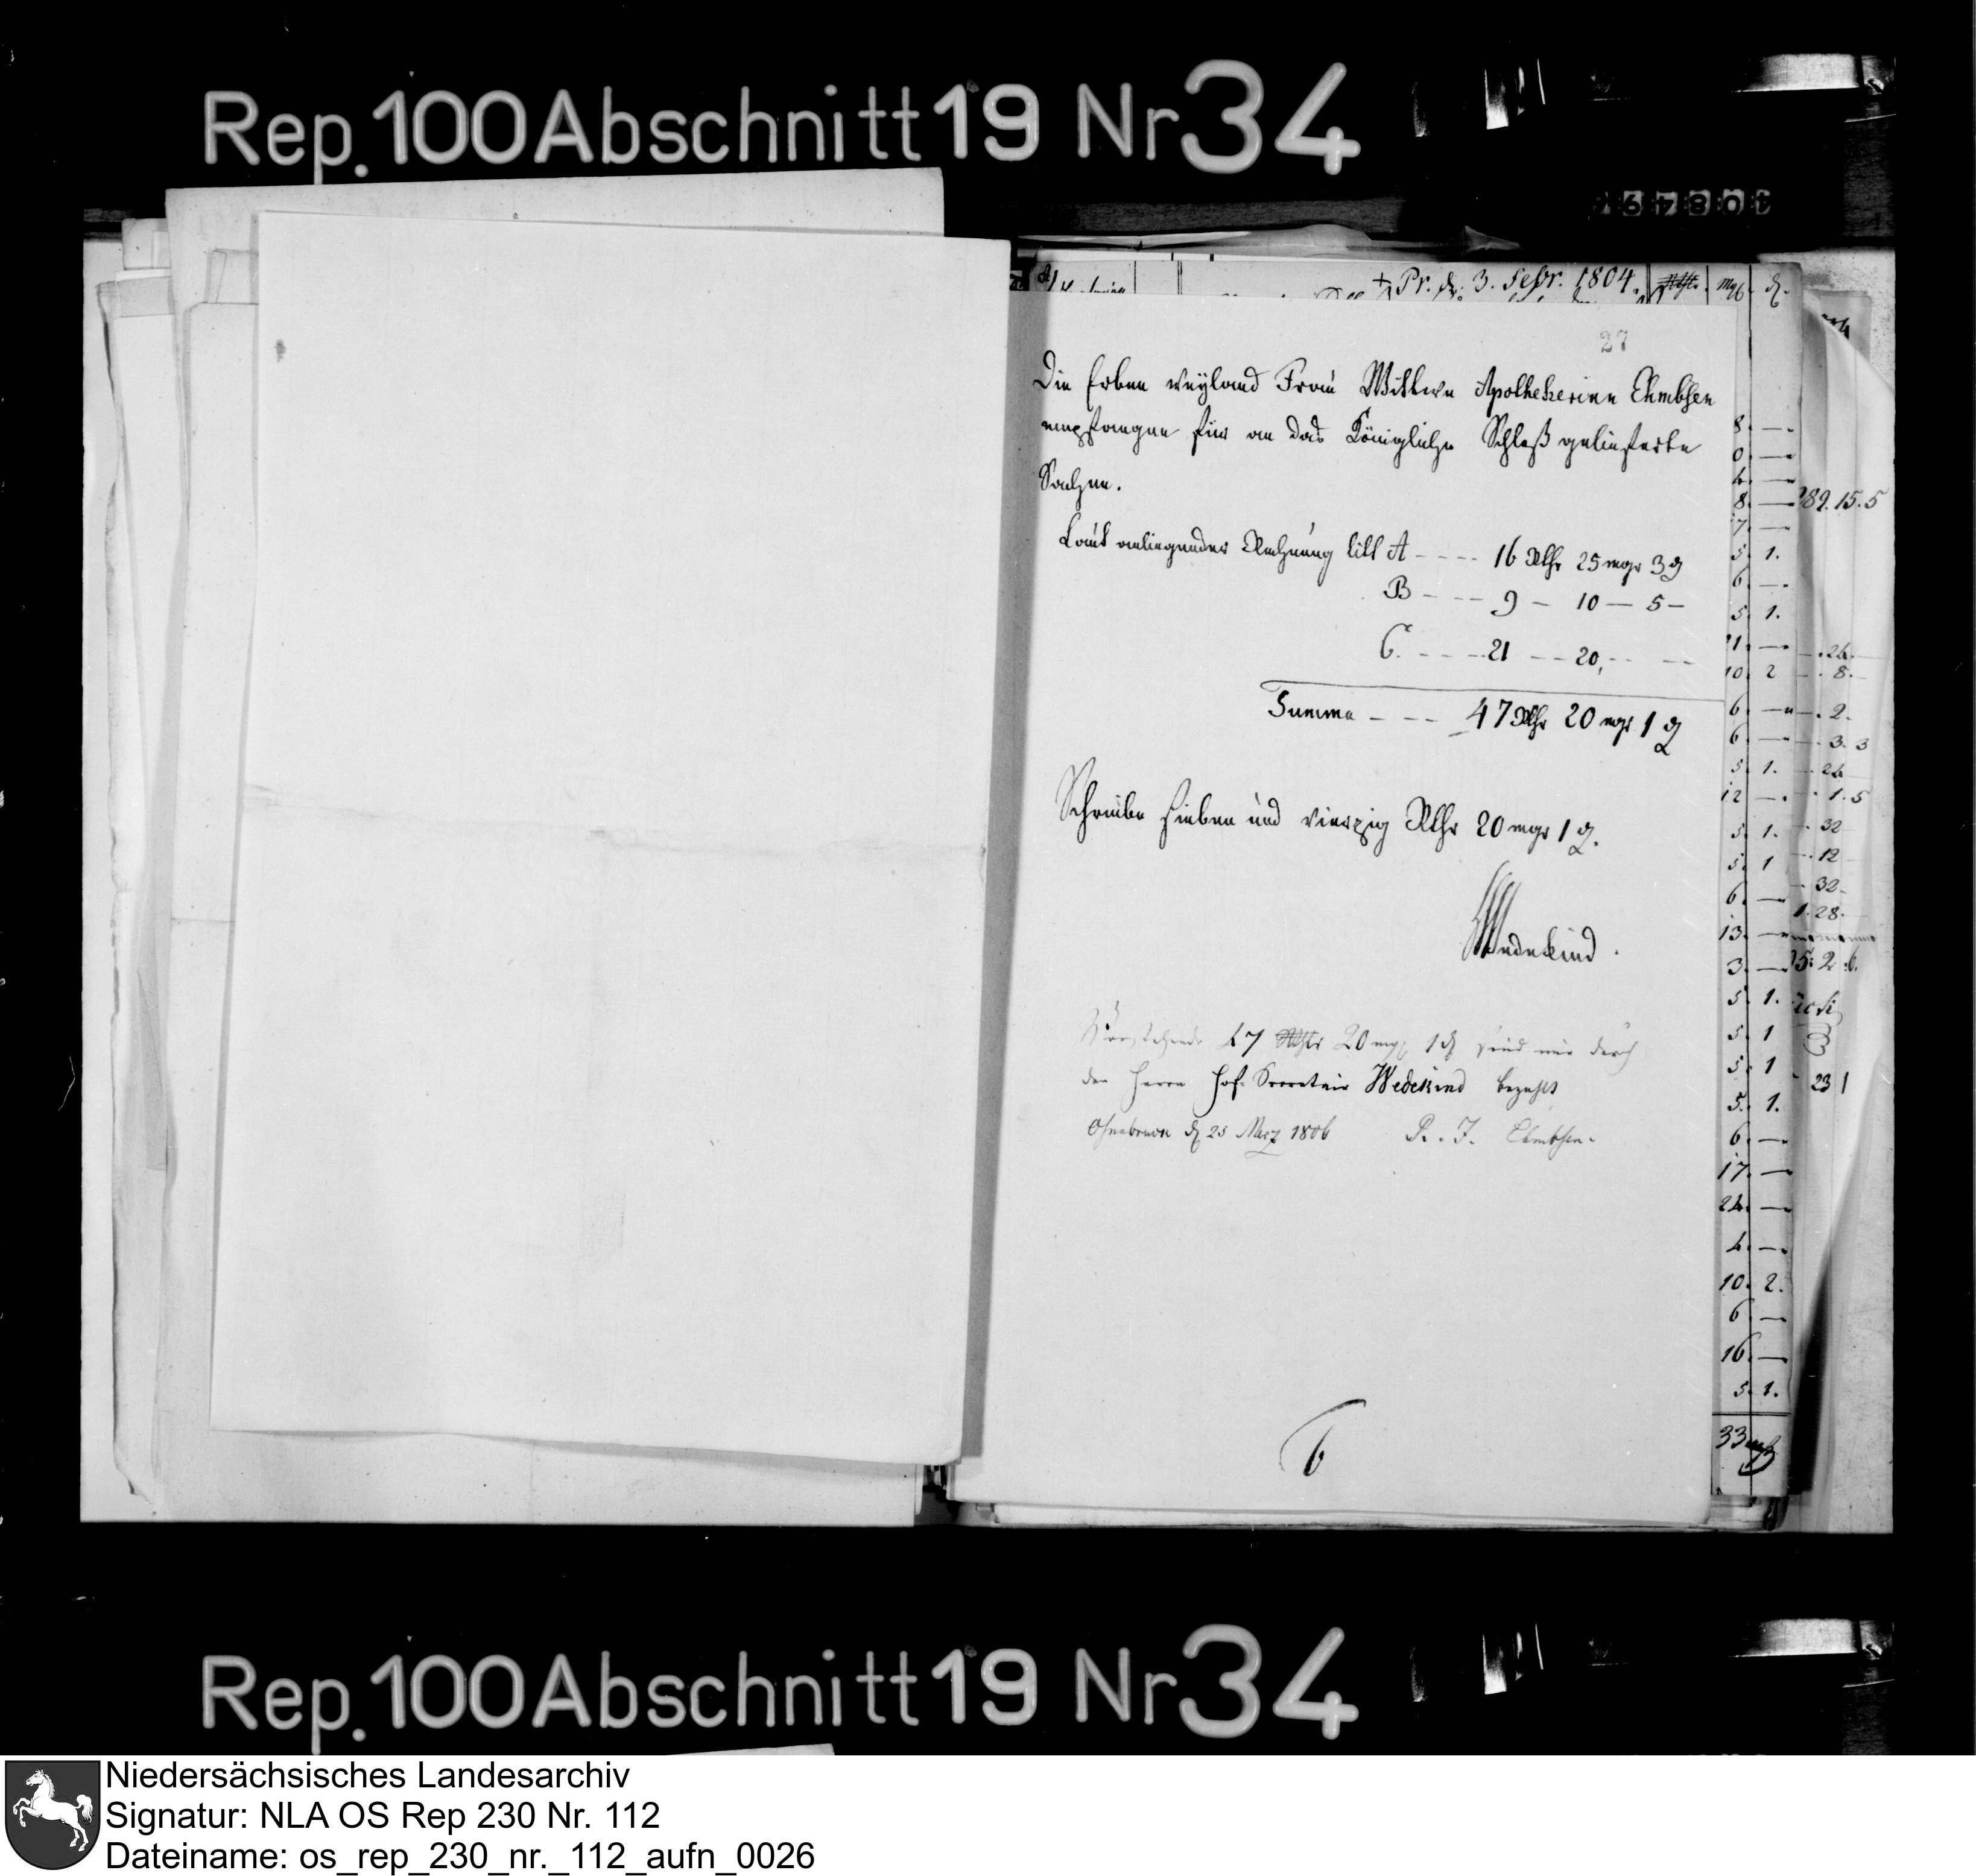 Rep. 100 Abschnitt 19 Nr 34
Pr. d. 3. Febr. 1804.
27
Die Erben weyland Frau Wittwe Apothekerinn Ehmbsen
empfangen für an das Königliche Schloß gelieferte
Sachen.
Laut anliegender Rechnung litt A ---- 16 Rthr 25 mgr 3 ₰
B ---- 9 — 10 — 5 —
C. ---- 21 -- 20, -- --
Summa --- 47 Rthr 20 mgr 1 ₰
Schreibe sieben und vierzig Rthr 20 mgr 1 ₰.
Wedekind.
Vorstehende 47 Rthr 20 mgr 1 ₰ sind mir durch
den Herrn Hof-Secretair Wedekind bezahlt
Osnabrück d 25 Merz 1806 Ehmbsen.
6
8. —
0. —
4. —
8. —
289.15.5
17. —
5. 1.
6. —
5. 1.
21. —
. 24.
10. 2
. 8.
6. —
. 2.
6. —
3. 3
5. 1.
24
12 —.
1. 5
5. 1.
32
5. 1
12
6. —
32
1. 28.
13. —
3. —
5: 2 .6.
5. 1.
5. 1
5. 1
23 1
5. 1.
6. —
17. —
24. —
4. —
10. 2.
6 —
16. —
5. 1.
33
Rep. 100 Abschnitt 19 Nr 34
Niedersächsisches Landesarchiv
Signatur: NLA OS Rep 230 Nr. 112
Dateiname: os_rep_230_nr._112_aufn_0026